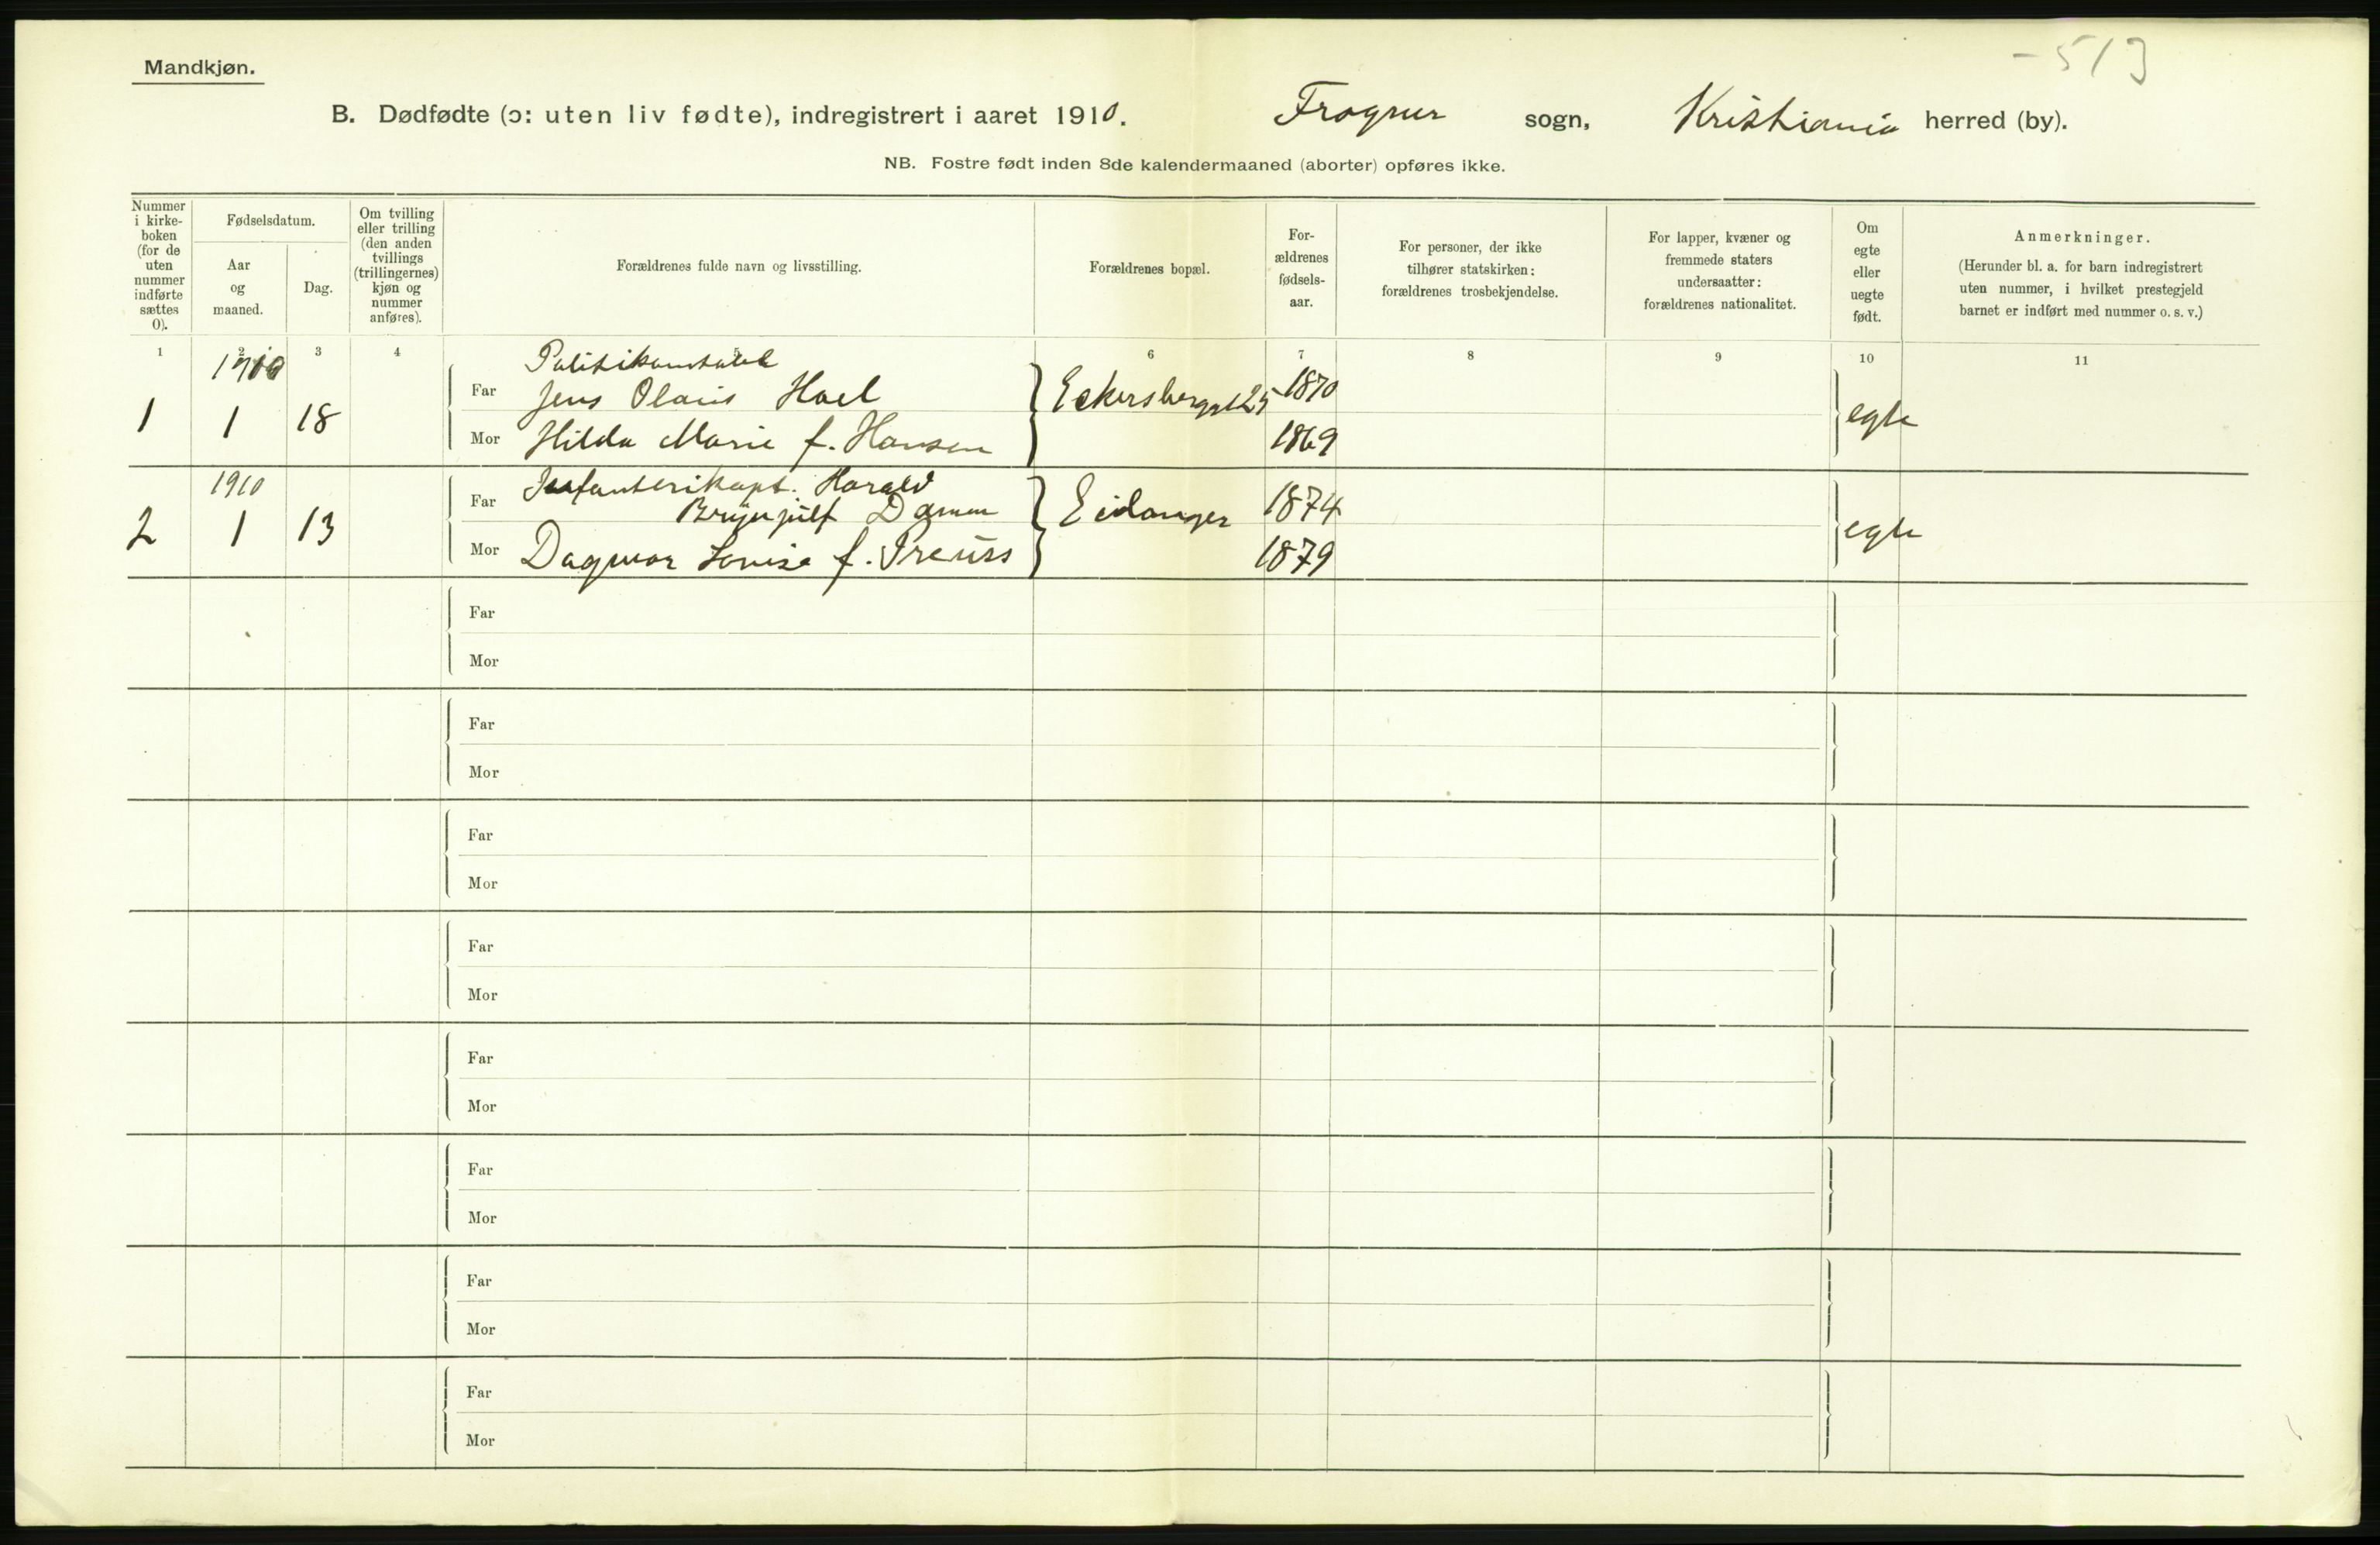 - 513
Mandkjøn.
B. Dødfødte (ɔ: uten liv fødte), indregistrert i aaret 1910. Frogner sogn, Kristiania herred (by).
NB. Fostre født inden 8de kalendermaaned (aborter) opføres ikke.
Nummer i kirke-boken (for de uten nummer indførte sættes 0).
Fødselsdatum.
Aar og maaned.
Dag.
Om tvilling eller trilling (den anden tvillings (trillingernes) kjøn og nummer anføres).
Forældrenes fulde navn og livsstilling.
Forældrenes bopæl.
For-ældrenes fødsels-aar.
For personer, der ikke tilhører statskirken: forældrenes trosbekjendelse.
For lapper, kvæner og fremmede staters undersaatter: forældrenes nationalitet.
Om egte eller uegte født.
Anmerkninger.
(Herunder bl. a. for barn indregistrert uten nummer, i hvilket prestegjeld barnet er indført med nummer o. s. v.)
1 2 3 4 5 6 7 8 9 10 11
1910 Politikonstabel
Far Jens Olaus Hoel Eckersbergsgt 25 1870
1 1 18 egte
Mor Hilda Marie f. Hansen 1869
1910 Infanterikapt. Harald
Far Brynjulf Eidanger 1874
2 1 13 egte
Mor Dagmar Lovise f. Preuss 1879
Far
Mor
Far
Mor
Far
Mor
Far
Mor
Far
Mor
Far
Mor
Far
Mor
Far
Mor